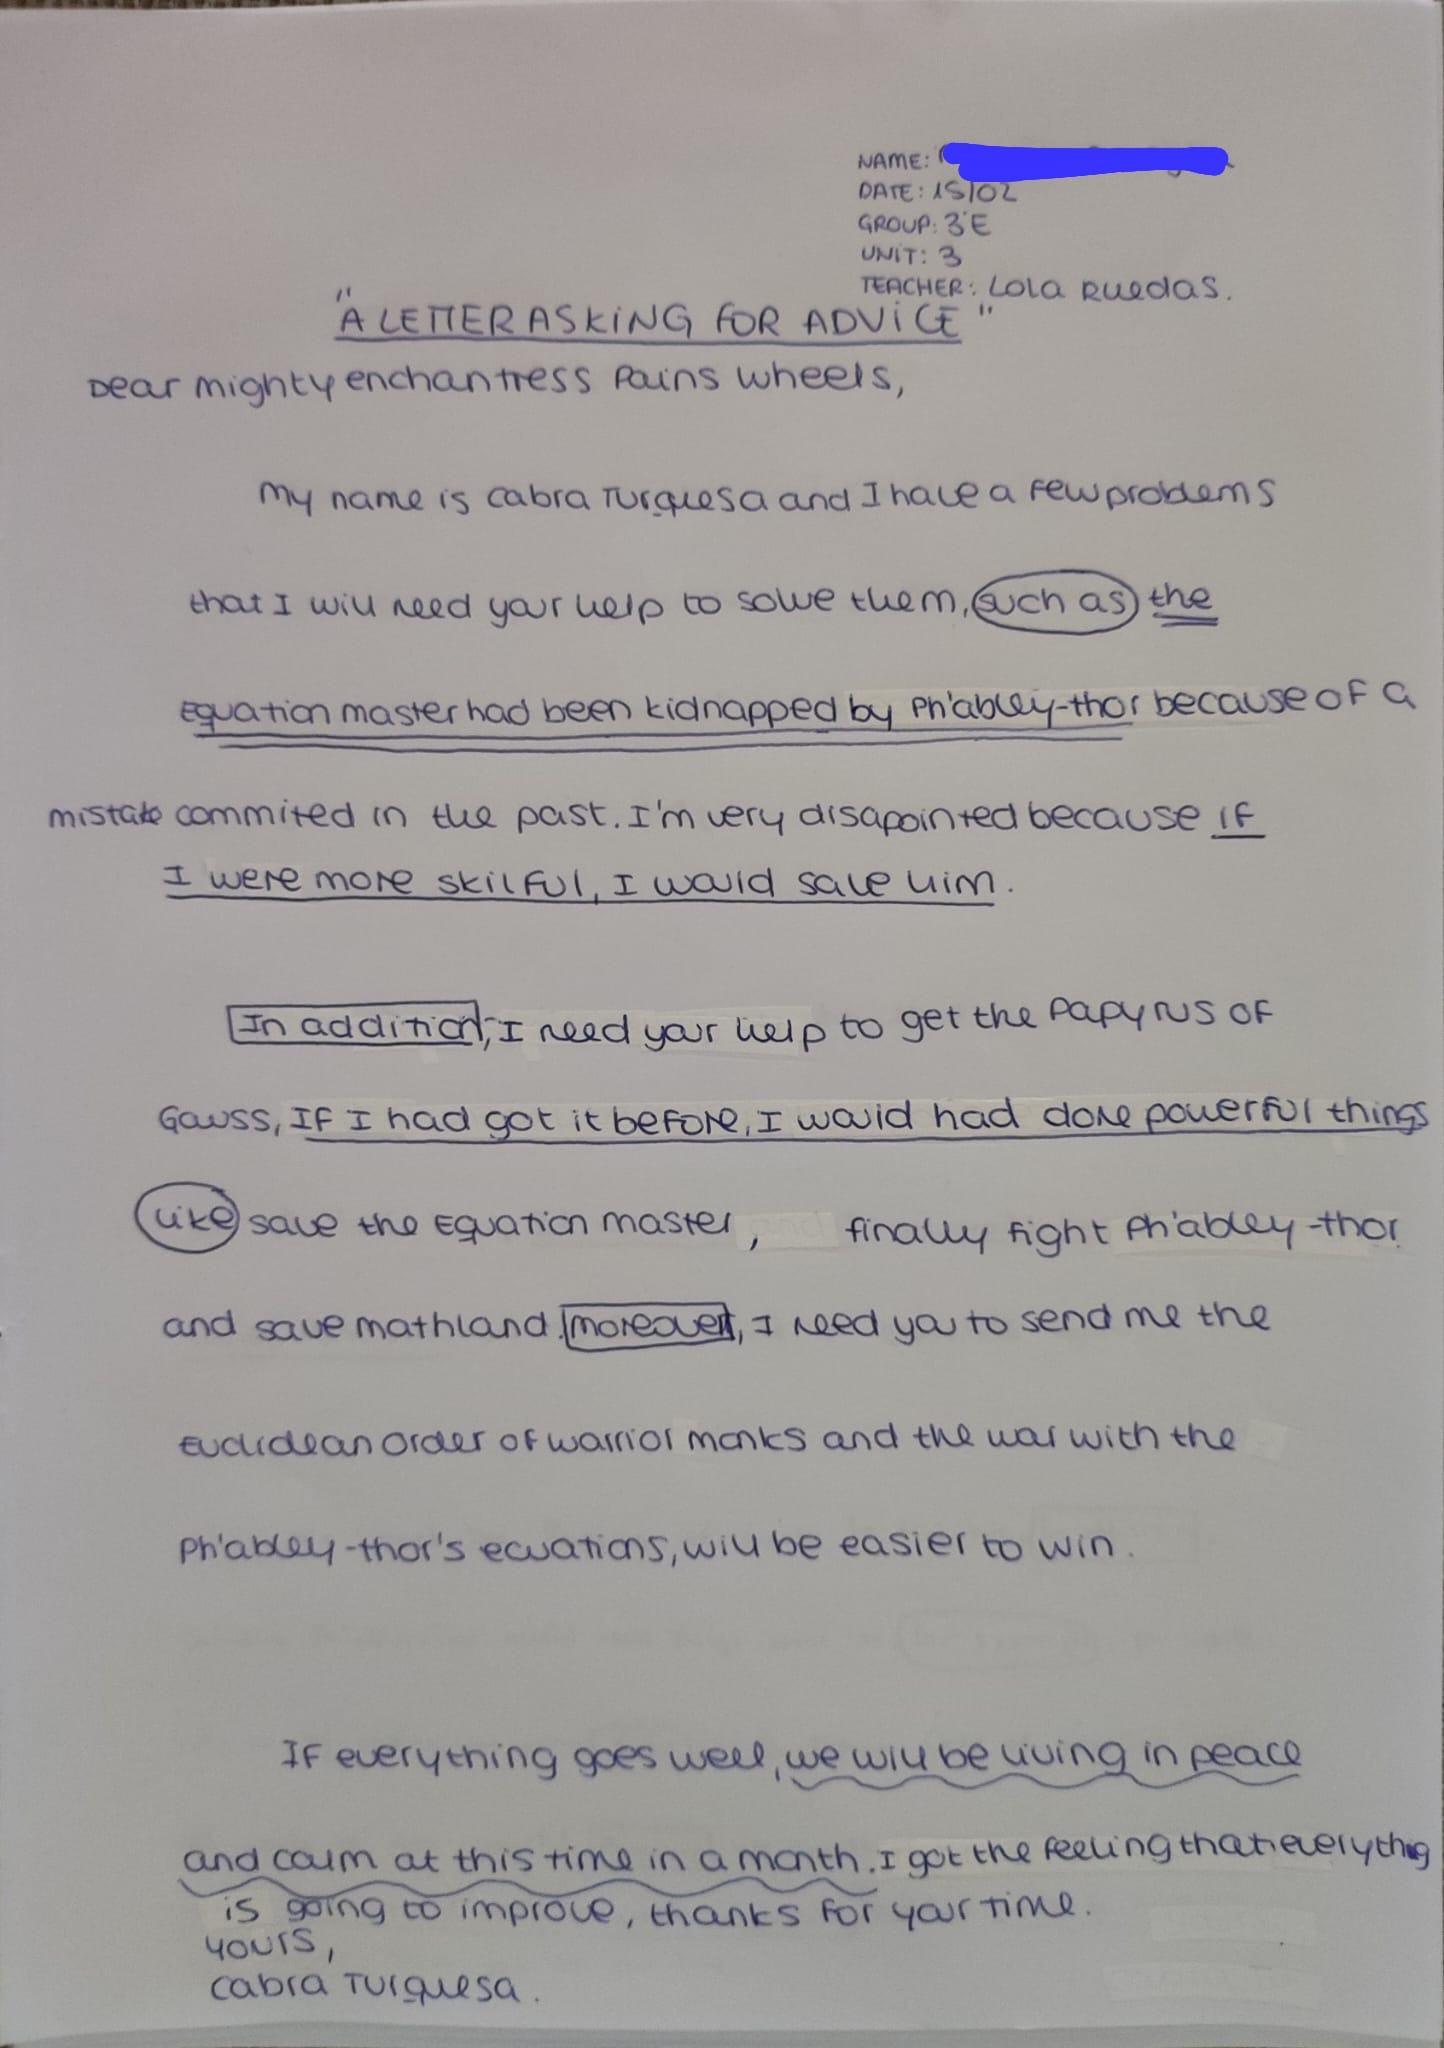 NAME:
DATE: 15/02
GROUP: 3ºE
UNIT: 3
TEACHER: Lola Ruedas.
"A LETTER ASKING FOR ADVICE"
Dear mighty enchantress Pains Wheels,
My name is Cabra Turquesa and I have a few problems
that I will need your help to solve them, such as the
Equation master had been kidnapped by Ph'abley-thor because of a
mistake commited in the past. I'm very disapointed because if
I were more skilful, I would save him.
In addition, I need your help to get the Papyrus of
Gauss, If I had got it before, I would had done powerful things
like save the Equation master, finally fight Ph'abley-thor
and save mathland. moreover, I need you to send me the
Euclidean order of warrior monks and the war with the
Ph'abley-thor's ecuations, will be easier to win.
If everything goes well, we will be living in peace
and calm at this time in a month. I got the feeling that everything
is going to improve, thanks for your time.
Yours,
Cabra Turquesa.